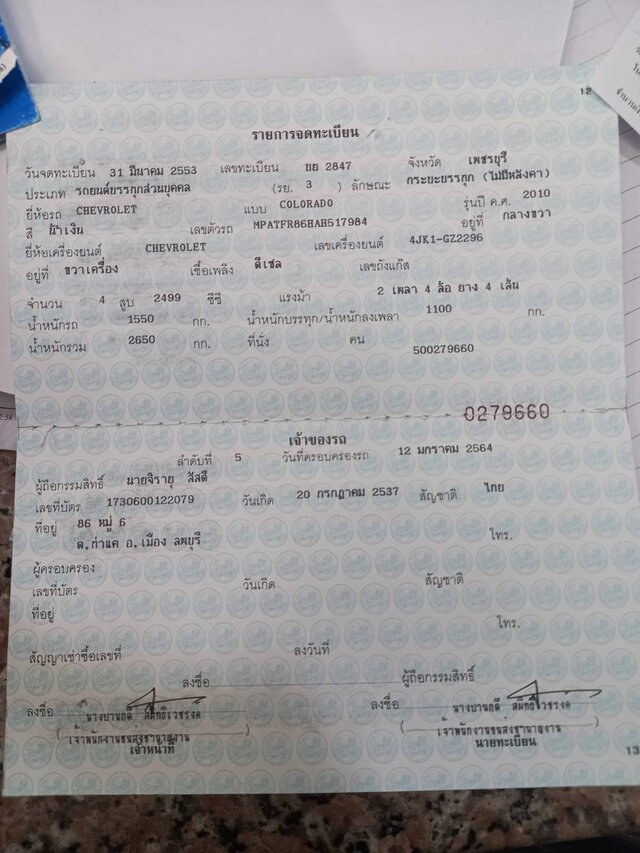 12
รายการจดทะเบียน
วันจดทะเบียน 31 มีนาคม 2553 เลขทะเบียน บย 2847 จังหวัด เพชรบุรี
ประเภท รถยนต์บรรทุกส่วนบุคคล (รย. 3 ) ลักษณะ กระบะบรรทุก (ไม่มีหลังคา)
ยี่ห้อรถ CHEVROLET แบบ COLORADO รุ่นปี ค.ศ. 2010
สี น้ำเงิน เลขตัวรถ MPATFR86HAH517984 อยู่ที่ กลางขวา
ยี่ห้อเครื่องยนต์ CHEVROLET เลขเครื่องยนต์ 4JK1-GZ2296
อยู่ที่ ขวาเครื่อง เชื้อเพลิง ดีเซล เลขถังแก๊ส
จำนวน 4 สูบ 2499 ซีซี แรงม้า 2 เพลา 4 ล้อ ยาง 4 เส้น
น้ำหนักรถ 1550 กก. น้ำหนักบรรทุก/น้ำหนักลงเพลา 1100 กก.
น้ำหนักรวม 2650 กก. ที่นั่ง คน
500279660
0279660
เจ้าของรถ
ลำดับที่ 5 วันที่ครอบครองรถ 12 มกราคม 2564
ผู้ถือกรรมสิทธิ์ นายจิรายุ สัสดี
เลขที่บัตร 1730600122079 วันเกิด 20 กรกฎาคม 2537 สัญชาติ ไทย
ที่อยู่ 86 หมู่ 6
ต.ท่าแค อ.เมือง ลพบุรี โทร.
ผู้ครอบครอง
เลขที่บัตร วันเกิด สัญชาติ
ที่อยู่
โทร.
สัญญาเช่าซื้อเลขที่ ลงวันที่
ลงชื่อ ผู้ถือกรรมสิทธิ์
ลงชื่อ ลงชื่อ
เจ้าหน้าที่ นายทะเบียน
13